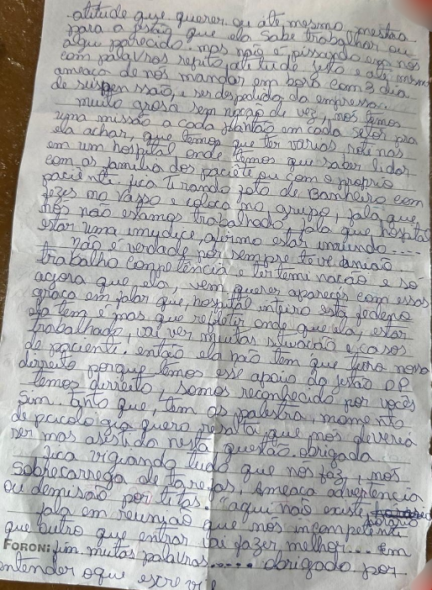 atitude que querer ou até mesmo, mostra
para a gestão que ela sabe trabalhar ou
algo parecido. mas não é pissando em nós
com palavras repito, atitude, jeito e até mesmo
ameaça de nós mandar em bora com 3 dia
de suspenssão, e ser despedida da empressa...
muito grosa sem noção de vez, nós temos
uma missão a cada plantão em cada setor, pra
ela achar, que temos que ter varias rote nas
em um hospital onde temos que saber lidar
com as familia dos paciete ou com o proprio
paciente. fica tirando foto de Banheiro com
fezes no vasso e coloca no grupo, fala que
nós não estamos trabalhado, fala que hospital
estar uma imudice, afirmo estar imundo....
não é verdade por sempre teve união
trabalho competência e ter temi nação e so
agora que ela, vem querer aparecer com essas
graça em falar que, hospital inteiro está fedeno
ela tem é mas que refletir onde que ela, estar
trabalhado, vai ver muitas situacão e casos
de paciente. então ela não tem que tirar nosso
direito porque temos esse apoio da gestão D.P.
temos direito, somos reconhecido por vocês
sim. tanto que, tem as palestra, momento
de pscologia quero resalta que nos deveria
ser mas asistido nesta questão. obrigada
fica viguando tudo que nos faz, nós
Sobrecarrega de tarefas, Ameaça advertencia
ou demisão por letas. "aqui não existe
fala em reunião que nos incompetente
que outro que entrar vai fazer melhor... Em
FORONI fim. muitas palavras..... obrigado por
entender oque escre vi